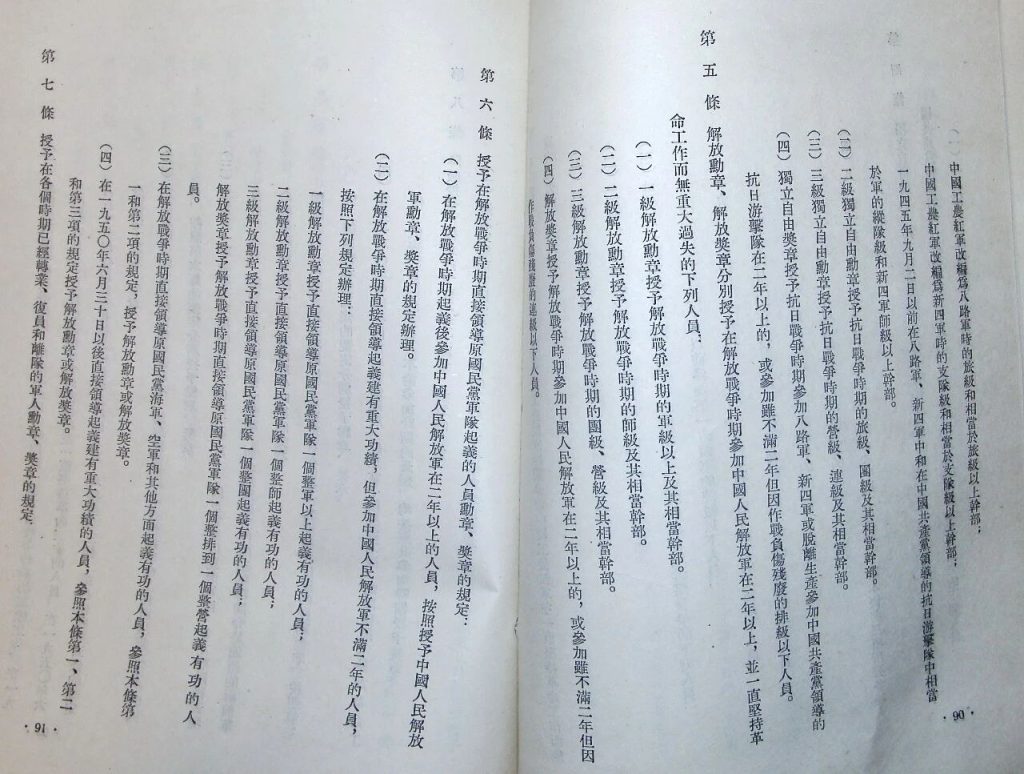 中國工農紅軍改編爲八路軍時的旅級和相當於旅級以上幹部；
中國工農紅軍改編爲新四軍時的支隊級和相當於支隊級以上幹部；
一九四五年九月二日以前在八路軍、新四軍中和在中國共產黨領導的抗日游擊隊中相當
於軍的縱隊級和新四軍師級以上幹部。
（二）二級獨立自由勳章授予抗日戰爭時期的旅級、團級及其相當幹部。
（三）三級獨立自由勳章授予抗日戰爭時期的營級、連級及其相當幹部。
（四）獨立自由獎章授予抗日戰爭時期參加八路軍、新四軍或脫離生產參加中國共產黨領導的
抗日游擊隊在二年以上的，或參加雖不滿二年但因作戰負傷殘廢的排級以下人員。
第五條 解放勳章、解放獎章分別授予在解放戰爭時期參加中國人民解放軍在二年以上，並一直堅持革
命工作而無重大過失的下列人員：
（一）一級解放勳章授予解放戰爭時期的軍級以上及其相當幹部。
（二）二級解放勳章授予解放戰爭時期的師級及其相當幹部。
（三）三級解放勳章授予解放戰爭時期的團級、營級及其相當幹部。
（四）解放獎章授予解放戰爭時期參加中國人民解放軍在二年以上的，或參加雖不滿二年但因
作戰負傷殘廢的連級以下人員。
第六條 授予在解放戰爭時期直接領導原國民黨軍隊起義的人員勳章、獎章的規定：
（一）在解放戰爭時期起義後參加中國人民解放軍在二年以上的人員，按照授予中國人民解放
軍勳章、獎章的規定辦理。
（二）在解放戰爭時期直接領導起義建有重大功績，但參加中國人民解放軍不滿二年的人員，
按照下列規定辦理：
一級解放勳章授予直接領導原國民黨軍隊一個整軍以上起義有功的人員；
二級解放勳章授予直接領導原國民黨軍隊一個整師起義有功的人員；
三級解放勳章授予直接領導原國民黨軍隊一個整團起義有功的人員；
解放獎章授予解放戰爭時期直接領導原國民黨軍隊一個整排到一個整營起義有功的人
員。
（三）在解放戰爭時期直接領導原國民黨海軍、空軍和其他方面起義有功的人員，參照本條第
一和第二項的規定，授予解放勳章或解放獎章。
（四）在一九五〇年六月三十日以後直接領導起義建有重大功績的人員，參照本條第一、第二
和第三項的規定授予解放勳章或解放獎章。
第七條 授予在各個時期已經轉業、復員和離隊的軍人勳章、獎章的規定：
·90·
·91·